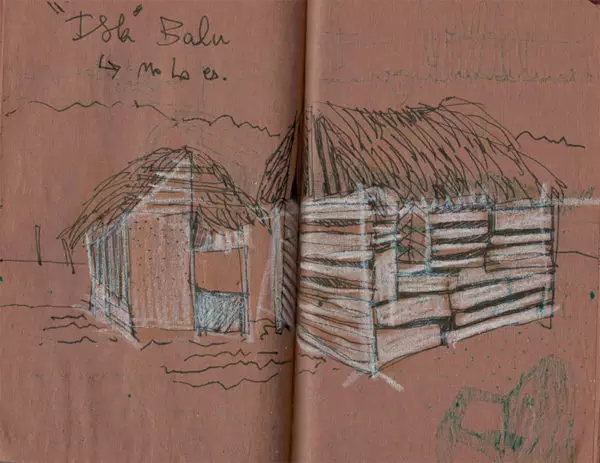 "Isla" Balu
↳ no lo es.